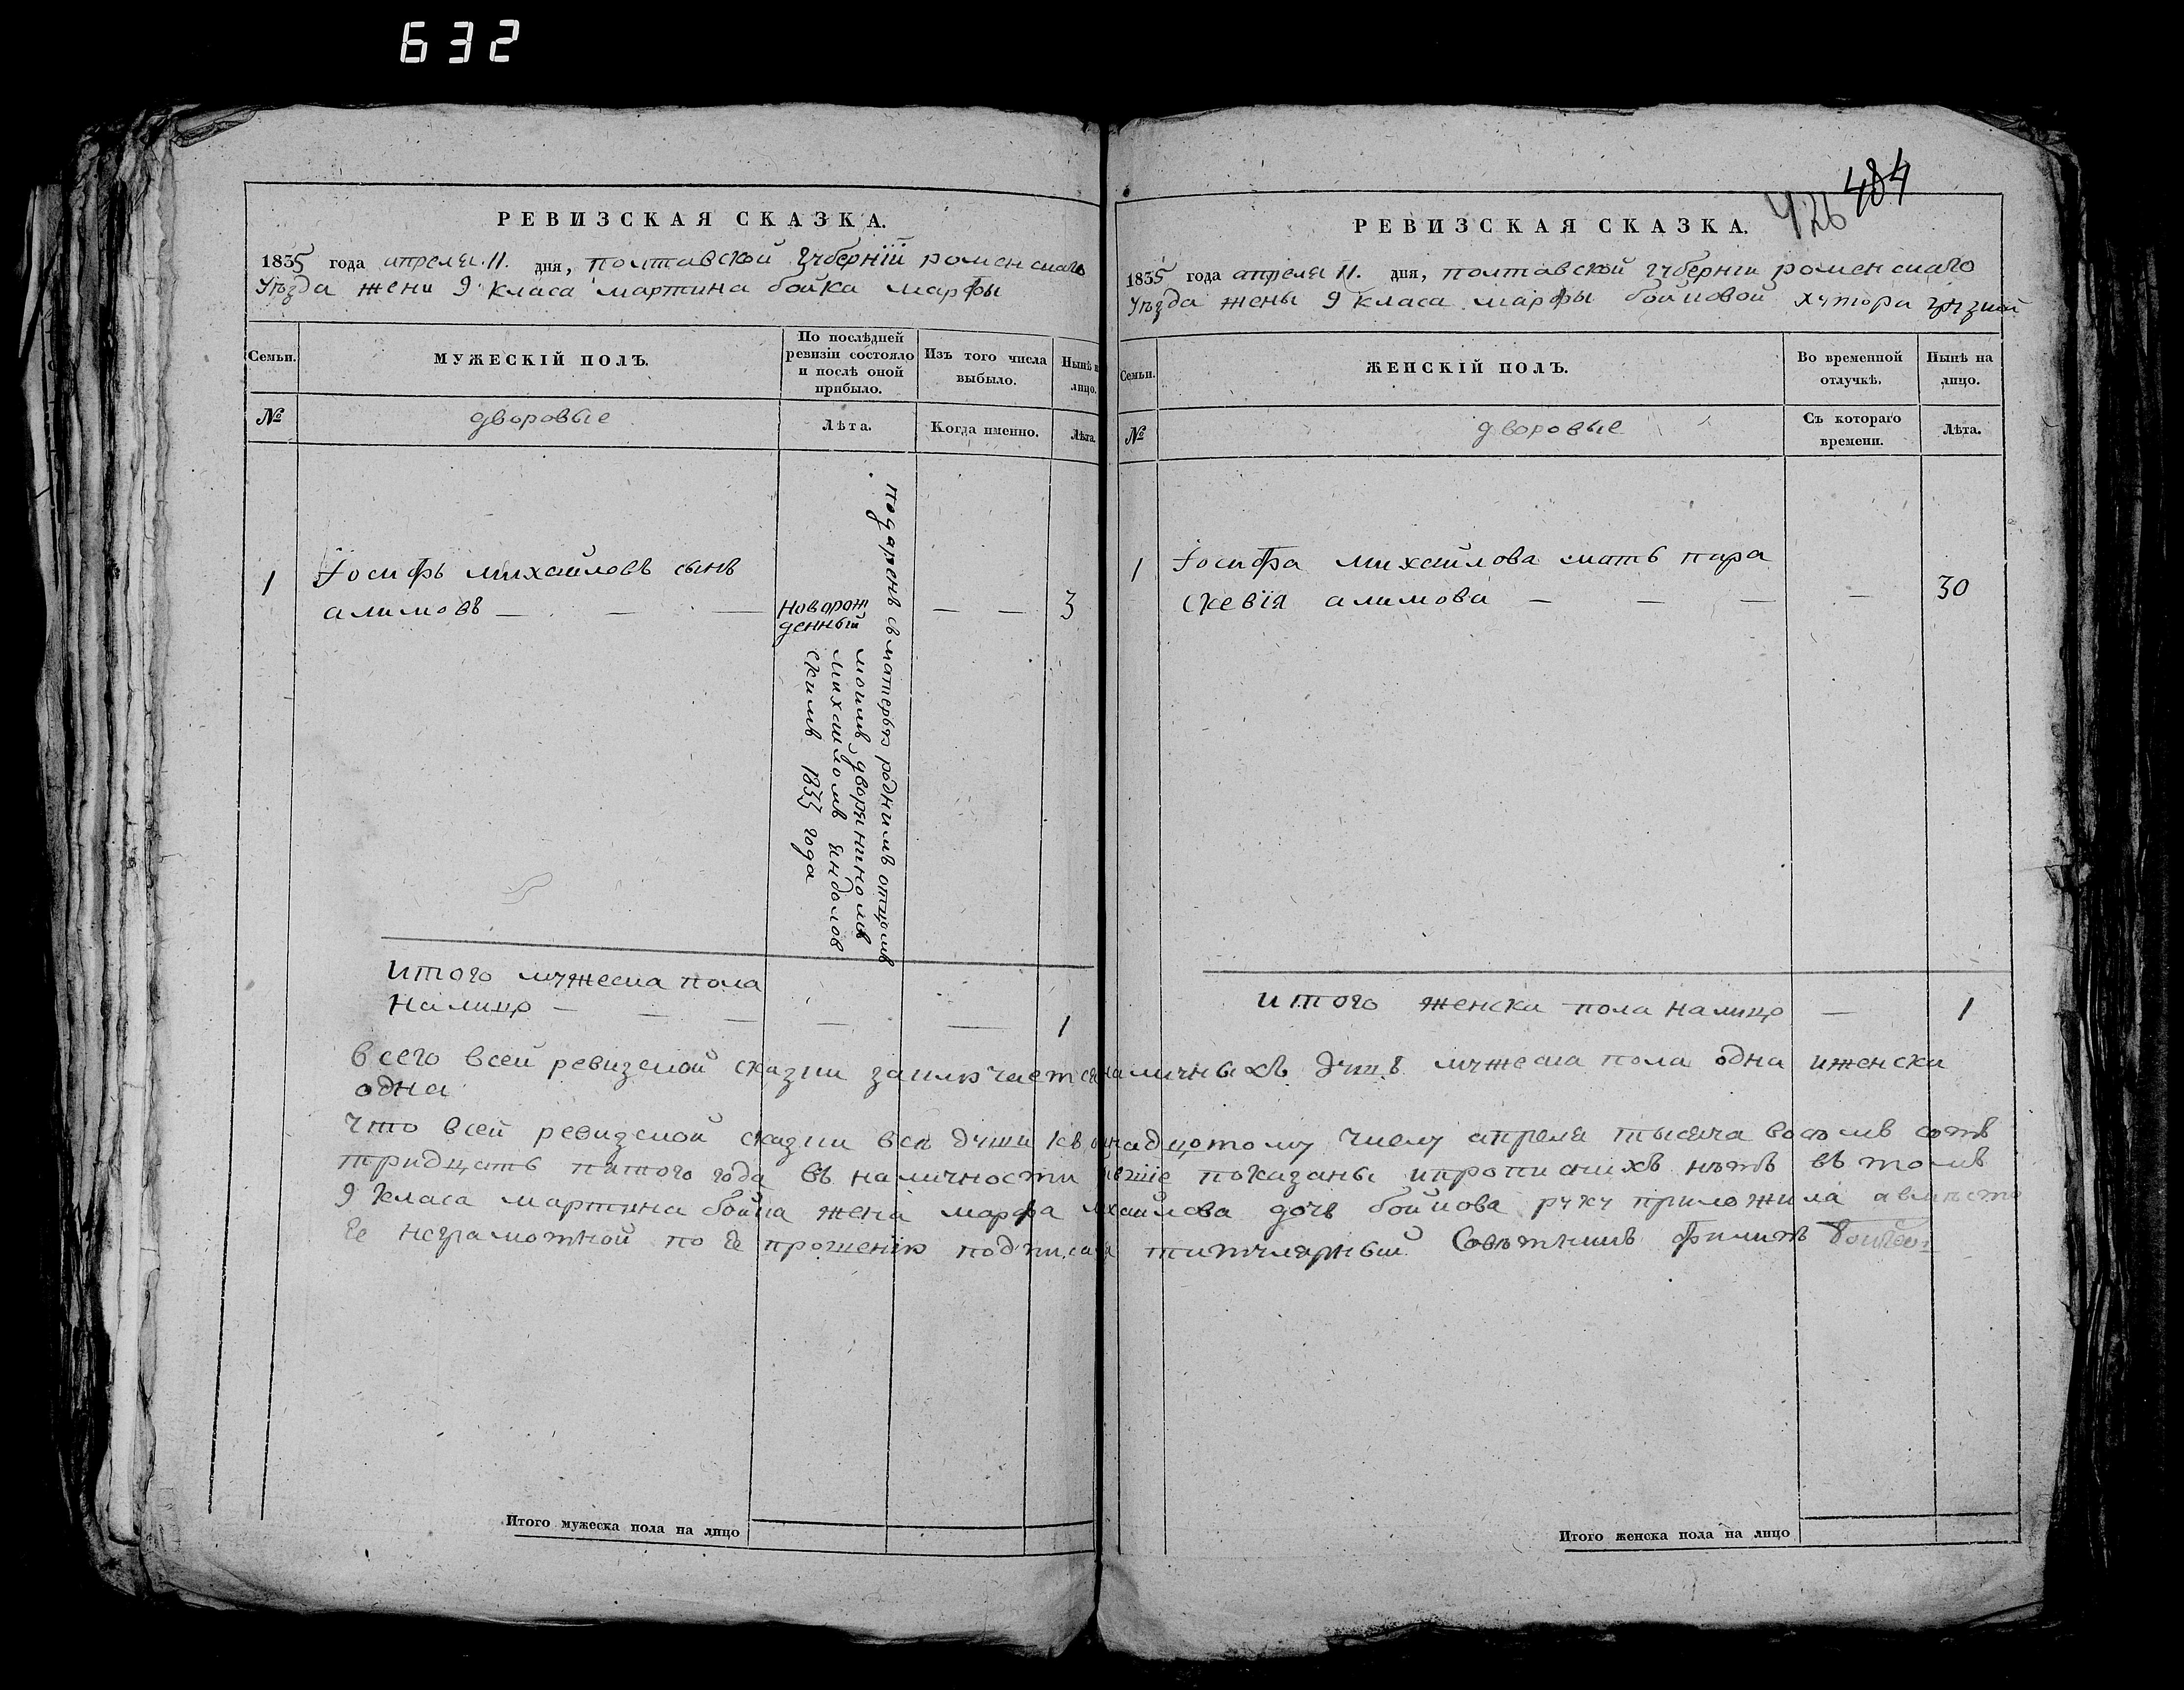 632
РЕВИЗСКАЯ СКАЗКА.
1835 года апреля 11. дня, полтавской губерніи роменскаго
Уѣзда жени 9 класа мартина бойка марфы
Семьи. МУЖЕСКІЙ ПОЛЪ. По послѣдней ревизіи состояло и послѣ оной прибыло. Изъ того числа выбыло. Нынѣ н лицо.
№ дворовые Лѣта. Когда именно. Лѣта.
1 Іосифъ михайловъ сынъ
алимовъ — — — новорож
денный — — 3
подаренъ съ матерью роднимъ отцомъ
моимъ дворяниномъ
михайломъ
скимъ 1833 года
итого мужеска пола
налицо — — — — — 1
484
426
РЕВИЗСКАЯ СКАЗКА.
1835 года апреля 11. дня, полтавской губерніи роменскаго
Уѣзда жены 9 класа марфы бойковой хутора грязной
Семьи. ЖЕНСКІЙ ПОЛЪ. Во временной отлучкѣ. Нынѣ на лицо.
№ дворовые Съ котораго времени. Лѣта.
1 Іосифа михайлова мать пара
скевія алимова — — — — 30
итого женска пола налицо — 1
всего всей ревизской сказки заключается наличныхъ душъ мужеска пола одна иженска
одна
что всей ревизской сказки всѣ души къ апреля тысяча восемъ сотъ
тридцать пятого года въ наличности показаны ипрописнихъ нѣтъ въ томъ
9 класа мартина бойка жена марфа михайлова дочь бойкова руку приложила авмѣсто
Ее неграмотной по ее прошенію подписалъ титулярный Совѣтникъ филипъ
Итого мужеска пола на лицо
Итого женска пола на лицо